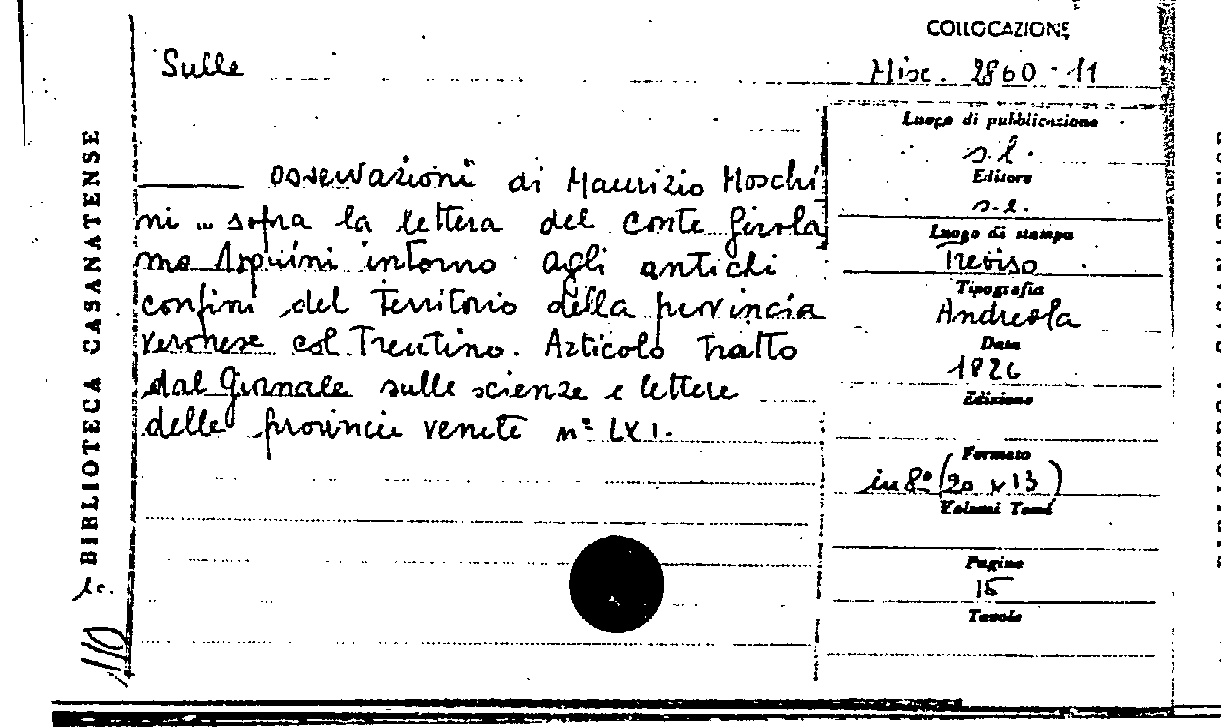 COLLOCAZIONE
Sulle
Misc. 2860-11
Luogo di pubblicazione
s.l.
Editore
s.e.
Luogo di stampa
Treviso
Tipografia
Andreola
Data
1826
Edizione
Formato
in 8º (20 x 13)
Volumi Tomi
Pagine
15
Tavole
osservazioni di Maurizio Moschi
ni ... sopra la lettera del conte Girola
mo Asquini intorno agli antichi
confini del territorio della provincia
veronese col Trentino. Articolo tratto
dal Giornale sulle scienze e lettere
delle provincie venete nº LXI.
BIBLIOTECA CASANATENSE
110